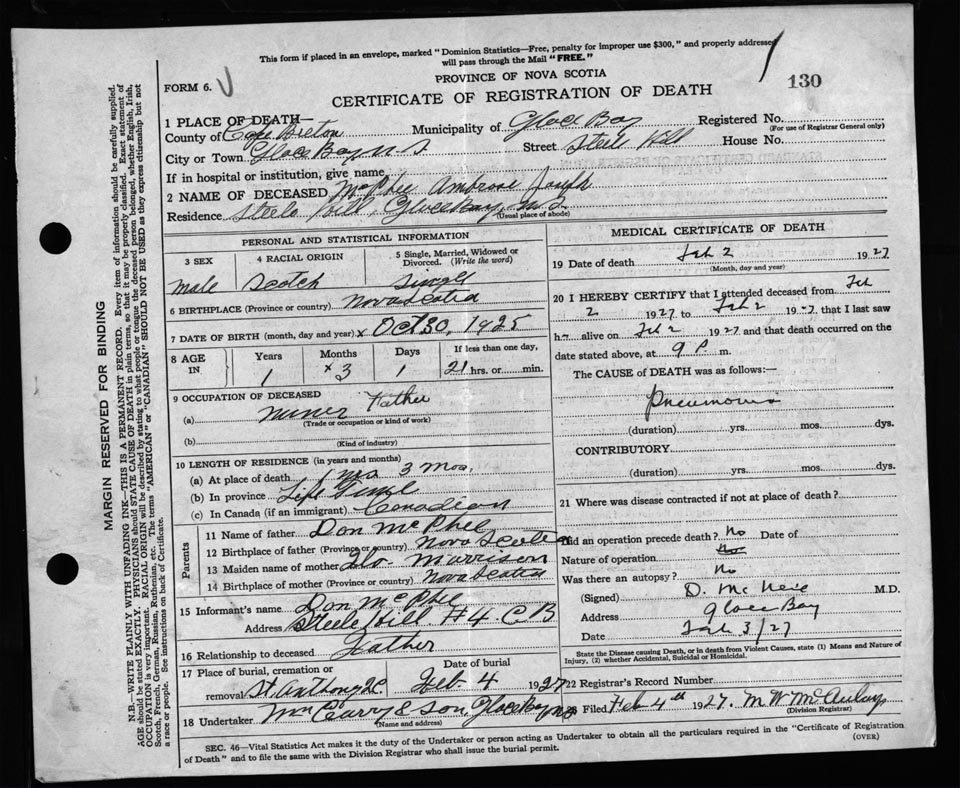 This form if placed in an envelope, marked "Dominion Statistics—Free, penalty for improper use $300," and properly addressed
will pass through the Mail "FREE."
FORM 6.
PROVINCE OF NOVA SCOTIA
130
CERTIFICATE OF REGISTRATION OF DEATH
1 PLACE OF DEATH—
County of Cape Breton Municipality of Glace Bay Registered No.
(For use of Registrar General only)
City or Town Glace Bay N.S Street Steele Hill House No.
If in hospital or institution, give name
2 NAME OF DECEASED McPhee Ambrose Joseph
Residence Steele Hill, Glace Bay, N.S.
(Usual place of abode)
PERSONAL AND STATISTICAL INFORMATION
3 SEX 4 RACIAL ORIGIN 5 Single, Married, Widowed or
Divorced. (Write the word)
male Scotch Single
6 BIRTHPLACE (Province or country) Nova Scotia
7 DATE OF BIRTH (month, day and year) x Oct 30, 1925
8 AGE IN Years Months Days If less than one day,
1 x 3 1 21 hrs. or min.
9 OCCUPATION OF DECEASED Father
(a) miner
(Trade or occupation or kind of work)
(b)
(Kind of industry)
10 LENGTH OF RESIDENCE (in years and months)
(a) At place of death 1 yrs 3 mos.
(b) In province Life
(c) In Canada (if an immigrant) Canadian
Parents
11 Name of father Don McPhee
12 Birthplace of father (Province or country) Nova Scotia
13 Maiden name of mother Flo Morrison
14 Birthplace of mother (Province or country) Nova Scotia
15 Informant's name Don McPhee
Address Steele Hill #4 C B
16 Relationship to deceased Father
17 Place of burial, cremation or Date of burial
removal St Anthony Feb. 4 1927
18 Undertaker & Son, Glace Bay NS
(Name and address)
MEDICAL CERTIFICATE OF DEATH
19 Date of death Feb 2 1927
(Month, day and year)
20 I HEREBY CERTIFY that I attended deceased from Feb
2 1927 to Feb 2 1927, that I last saw
h alive on Feb 2 1927 and that death occurred on the
date stated above, at 9 P. m.
The CAUSE of DEATH was as follows:—
Pneumonia
(duration) yrs. mos. dys.
CONTRIBUTORY
(duration) yrs. mos. dys.
21 Where was disease contracted if not at place of death?
Did an operation precede death? No Date of
Nature of operation
Was there an autopsy? No
(Signed) D. McNeil M.D.
Address Glace Bay
Date Feb 3/27
State the Disease causing Death, or in death from Violent Causes, state (1) Means and Nature of
Injury, (2) whether Accidental, Suicidal or Homicidal.
22 Registrar's Record Number
Filed Feb 4th 1927. M W McAulay
(Division Registrar)
SEC. 46—Vital Statistics Act makes it the duty of the Undertaker or person acting as Undertaker to obtain all the particulars required in the "Certificate of Registration
of Death" and to file the same with the Division Registrar who shall issue the burial permit.
(OVER)
MARGIN RESERVED FOR BINDING
N.B—WRITE PLAINLY WITH UNFADING INK—THIS IS A PERMANENT RECORD. Every item of information should be carefully supplied.
AGE should be stated EXACTLY. PHYSICIANS should STATE CAUSE OF DEATH in plain terms, so that it may be properly classified. Exact statement of
OCCUPATION is very important. RACIAL ORIGIN will be described by stating to what people or tongue the deceased person belonged, whether English, Irish,
Scotch, French, German, Russian, Ruthenian, etc. The terms "AMERICAN" or "CANADIAN" SHOULD NOT BE USED as they express citizenship but not
a race or people. See instructions on back of Certificate.